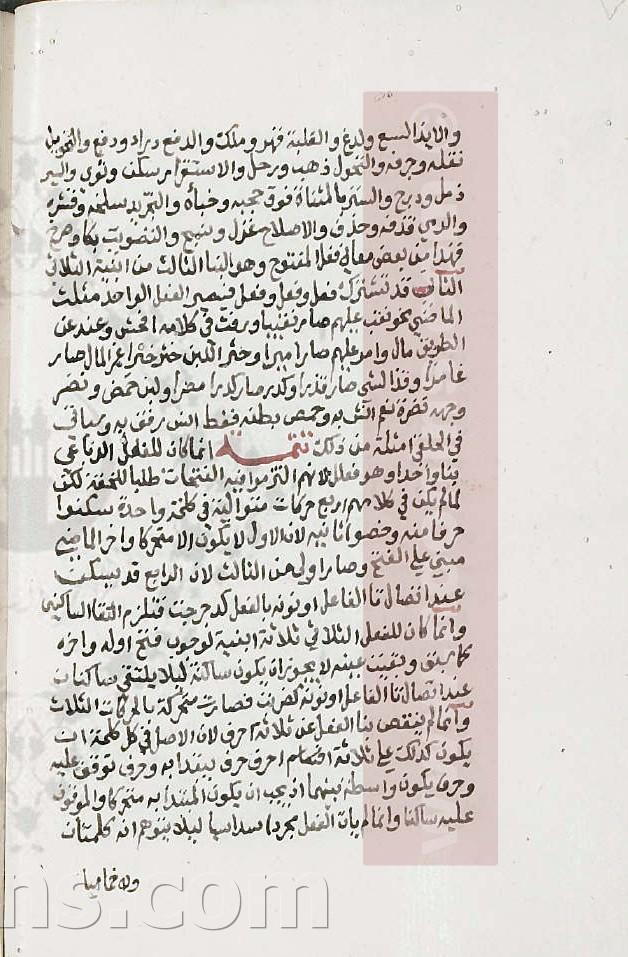 والايذا لسع ولدغ والغلبة قهر وملك والدفع دراه ودفع والتحويل
نقله وجرفه والتحول ذهب ورحل والاستقرار سكن وثوى والسير
ذمل ودرج والستر بالمثناة فوق حجبه وخبأه والتجريد سلخه وقشره
والرمي قذفه وحذف والاصلاح غزل ونسج والتصويت بكا وصرخ
فهذا من بعض معاني فعل المفتوح وهو البنا الثالث من ابنية الثلاثي
قد تشترك فعل وفعل وفعل فيصير الفعل الواحد مثلث
الماضي نحو نقب عليهم صار نقيبا ورفث في كلامه افحش وعند عن
الطريق مال وامر عليهم صار اميرا وخثر اللبن خثر خثرا عمر المال صار
عامرا وقذر الشي صار قذرا وكدر صار كدرا مضر اولبن حمض ونضر
وجهه نضرة نعم انس به وخمص بطنه فقط انس رفق به وسياتي
في الحلقي امثلة من ذلك تتمة انما كان للفعل الرباعي
بنا واحد وهو فعلل لانهم التزموا فيه الفتحات طلبا للخفة لكن
لما لم يكن في كلامهم اربع حركات متوالية في كلمة واحدة سكنوا
حرفا منه وخصوا ثانيه لان الاول لا يكون الا متحركا واخر الماضي
مبني على الفتح وصار اولى من الثالث لان الرابع قد يسكن
عند اتصال تا الفاعل او نونه بالفعل كدحرجت فيلزم التقا الساكنين
وانما كان للفعل الثلاثي ثلاثة ابنية لوجوب فتح اوله واخره
كما سبق وبقيت عينه لا يجوز ان يكون ساكنة ليلا يلتقي ساكنان
عند اتصاله تا الفاعل او نونه كضربت فصارت متحركة بالحركات الثلاث
وانما لم ينقص بنا الفعل عن ثلاثة احرف لان الاصل في كل كلمة ان
يكون كذلك على ثلاثة اقسام احرف حرف يبتدا به وحرف توقف عليه
وحرف يكون واسطة بينهما اذ يجب ان يكون المبتدا به متحركا والموقوف
عليه ساكنا وانما لم يات الفعل مجردا سداسيا ليلا يتوهم انه كلمتان
ولا خماسيا
ns.com